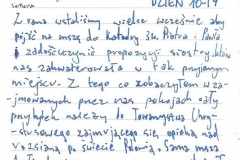 DZIEŃ 10-14
Z rana wstaliśmy wielce wcześnie aby
pójść na mszę do katedry św. Piotra i Pawła
i zadośćczynić propozycji siostry, która
nas zakwaterowała w tak przyjemnym
miejscu. Z tego co zobaczyłem w za-
jmowanych przez nas pokojach cały
przybytek należy do Towarzystwa Chry-
stusowego zajmującego się opieką nad
rozsianą po świecie Polonią. Sama msza